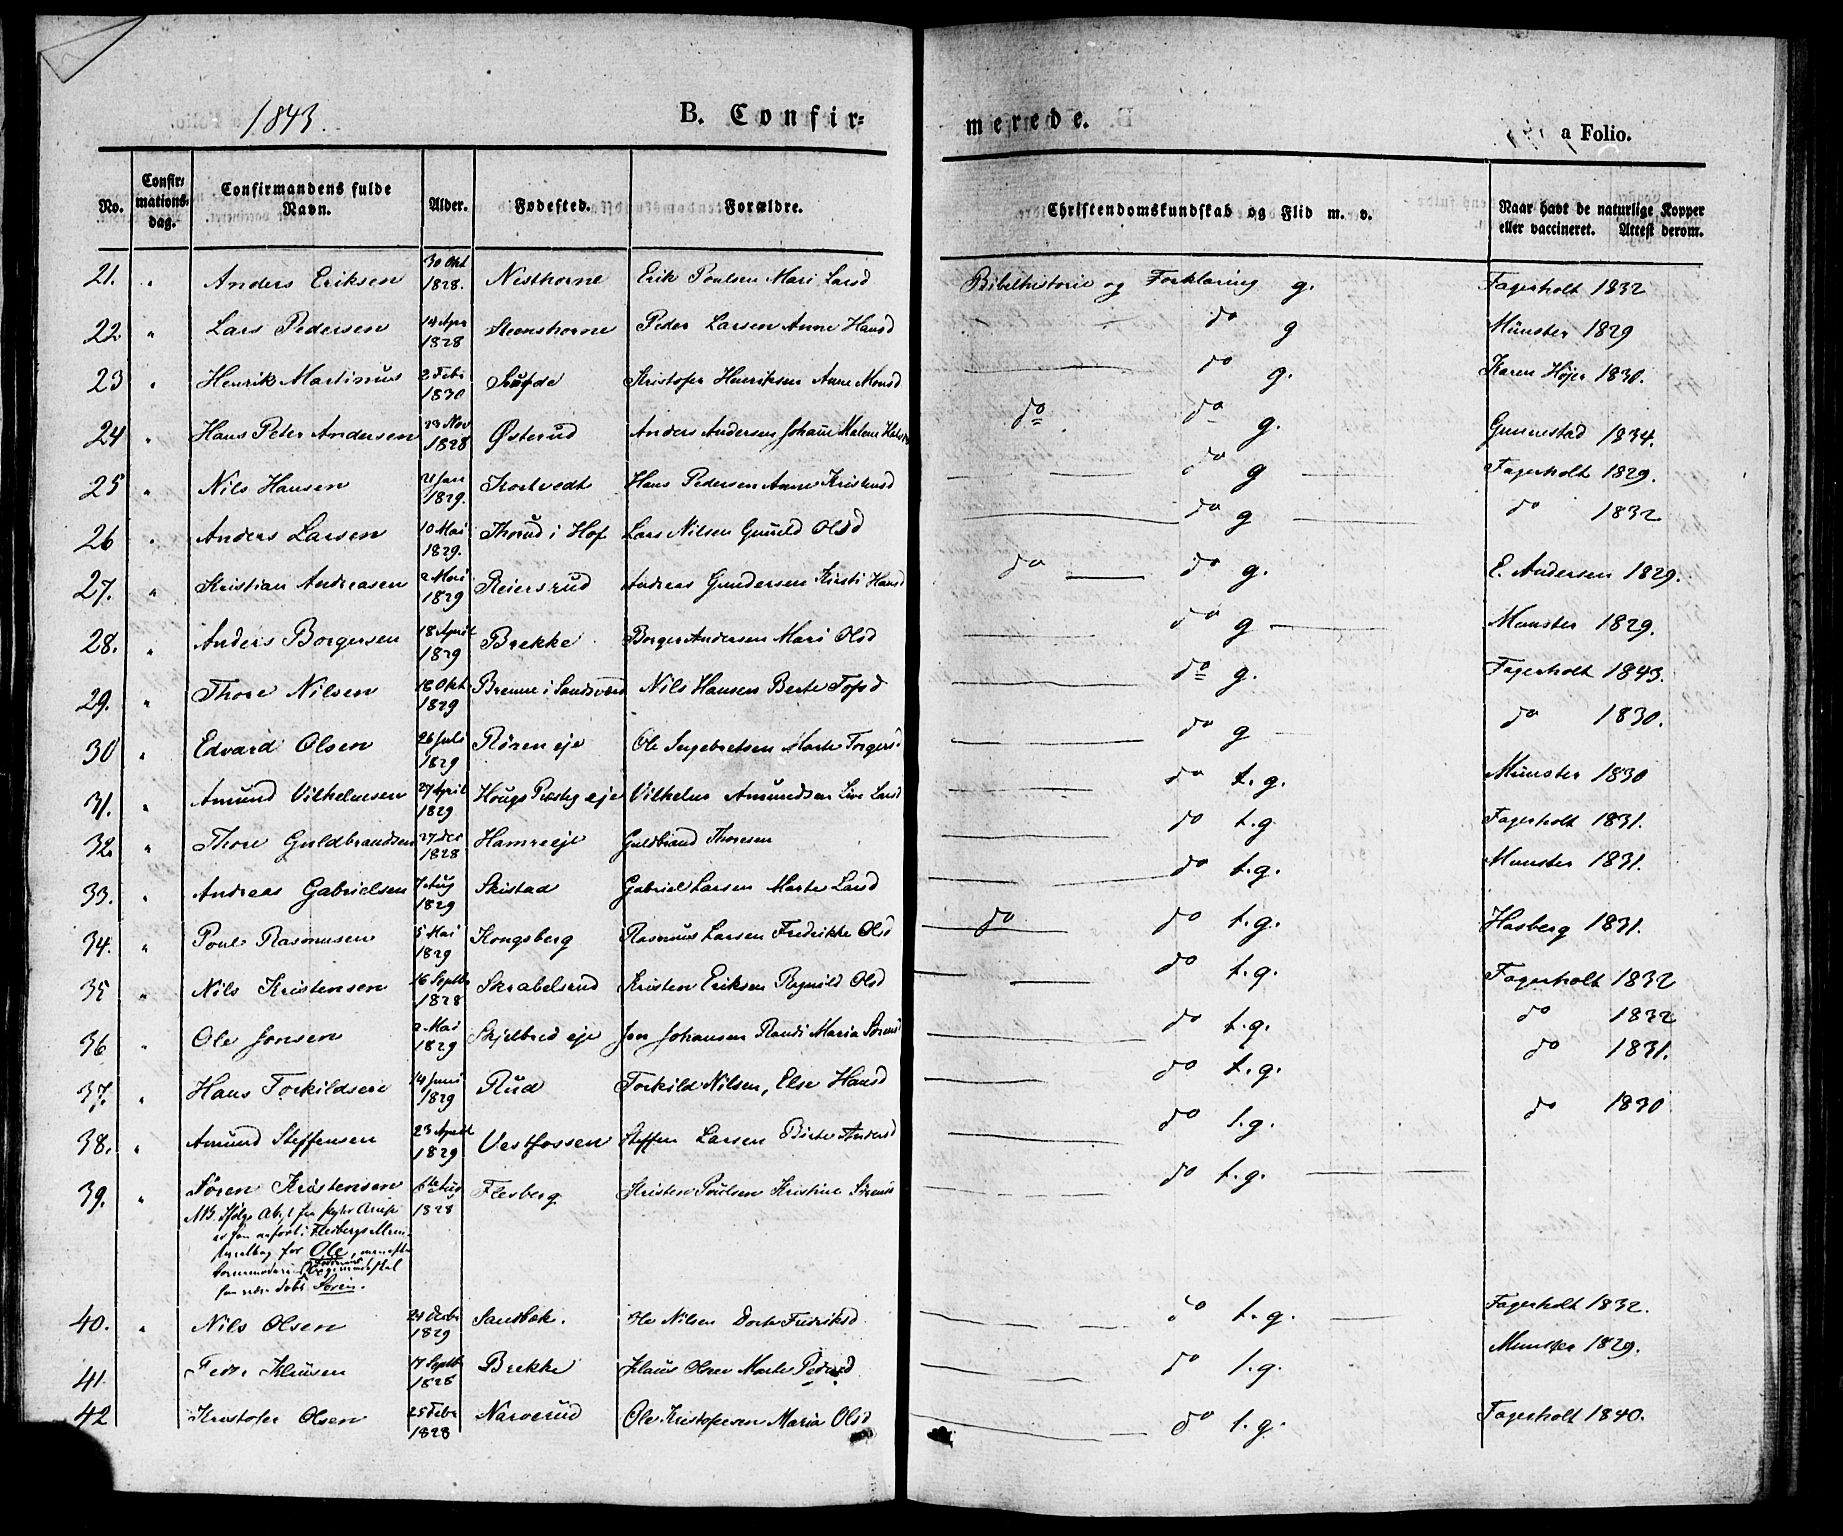 1843.
B. Confir-
merede.
a Folio.
No. Confir-mations-dag. Confirmandens fulde Navn. Alder. Fødested. Forældre. Christendomskundskab og Flid m. v. Naar havt de naturlige Kopper eller vaccineret. Attest derom.
21. " Anders Eriksen 30 Okt 1828. Nesthorne Erik Poulsen Mari Larsd Bibelhistorie og Forklaring g. Fagerholt 1832
22 " Lars Pedersen 14 Apr 1828 Steenshorne Peder Larsen Anne Hansd do g Münster 1829
23 " Henrik Martinus 2 Febr 1830 Kristofer Henriksen Anne Monsd do g. Karen Højer 1830.
24 " Hans Peter Andersen 23 Nov 1828 Østerud Anders Andersen Johane Malene do do g. Gunnestad 1834.
25 " Nils Hansen 21 Jan 1829. Kortvedt Hans Pedersen Anne Kristensd do g Fagerholt 1829.
26 " Anders Larsen 10 Mai 1829. Thorud i Hof Lars Nilsen Gunild Olsd do g do 1832
27. " Kristian Andreasen 2 Mai 1829 Reiersrud Andreas Gundersen Kirsti Hansd do do g. E. Andersen 1829.
28. " Anders Borgersen 18 April 1829 Brekke Borger Andersen Mari Olsd do g Munster 1829.
29. " Thore Nilsen 18 Okt 1829 Brenne i Sandsværd Nils Hansen Berte Tofsd do g. Fagerholt 1843.
30 " Edvard Olsen 26 Juli 1829 Røren eje Ole Ingebretsen Marte Torgersd do g do 1830.
31. " Amund Vilhelmsen 27 April 1829 Hougs Præstg eje Vilhelm Amundsen Live Larsd do t.g. Münster 1830
32. " Thore Guldbrandsen 27 Dec 1828 Hamre eje Guldbrand Thoresen do t.g Fagerholt 1831.
33. " Andreas Gabrielsen 7 Aug 1829 Skistad Gabriel Larsen Marte Larsd do t.g. Munster 1831.
34. " Poul Rasmussen 5 Mai 1829 Kongsberg Rasmus Larsen Fredrikke Olsd do do t.g. Hasberg 1831.
35 " Nils Kristensen 16 Septbr 1828 Skrabelsrud Kristen Eriksen Ragnild Olsd do t.g. Fagerholt 1832
36 " Ole Jonsen 2 Mai 1829 Skjelbred eje Jon Johansen Randi Maria Sørensd do t.g. do 1832
37. " Hans Torkildsen 14 Juni 1829 Rud Torkild Nilsen, Else Hansd do t.g. do 1831.
38. " Amund Steffensen 23 April 1829 Vestfossen Steffen Larsen Birte Andersd do t.g. do 1830
39. " Søren Kristensen Aug 1828 Flesberg Kristen Poulsen Kristine Sørensd do t.g.
NB. Ifølge
er han anført i Flesbergs
for Ole,
døbt Søren.
40. " Nils Olsen 24 1829 Sandbæk. Ole Nilsen Dorte Fredriksd do t.g. Fagerholt 1832.
41 Peder Klausen 17 Septbr 1828 Brekke Klaus Olsen Marte Pedersd do t.g. Munster 1829.
42 Kristofer Olsen 25 Febr 1828 Narverud Ole Kristofersen Maria Olsd do t.g. Fagerholt 1840.